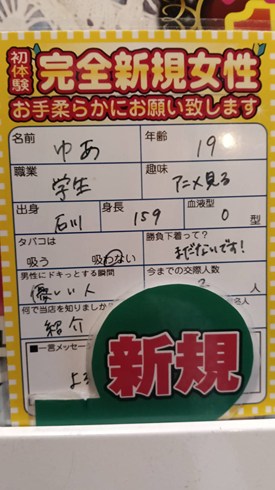 初体験
完全新規女性
お手柔らかにお願い致します
名前 ゆあ 年齢 19
職業 学生 趣味 アニメ見る
出身 石川 身長 159 血液型 O 型
タバコは 吸う 吸わない 勝負下着って? まだないです!
男性にドキッとする瞬間 優しい人 今までの交際人数 人
何で当店を知りましたか 紹介 名人
■一言メッセージ
よろ
新規